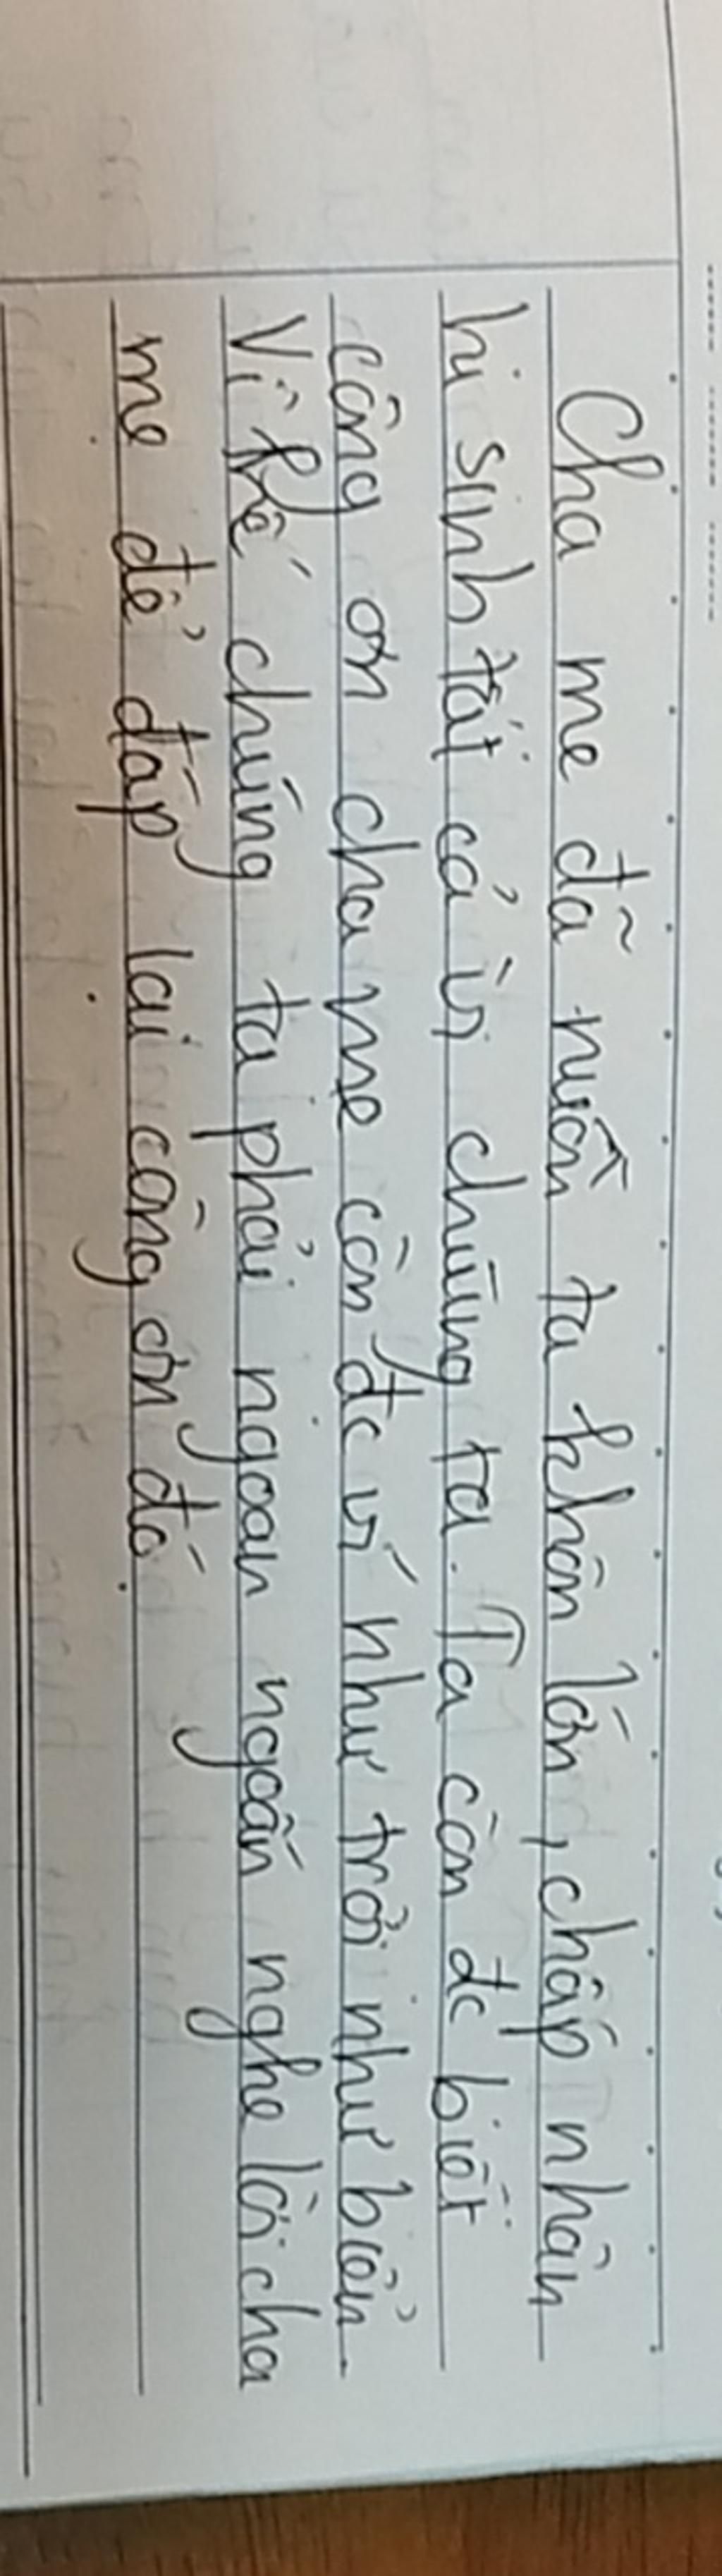 Cha mẹ đã nuôn ta khôn lớn, chấp nhận
hi sinh tất cả vì chúng ta. Ta còn đc biết
công ơn cha mẹ còn đc ví như trời như biển.
Vì thế chúng ta phải ngoan ngoãn nghe lời cha
mẹ để đáp lại công ơn đó.